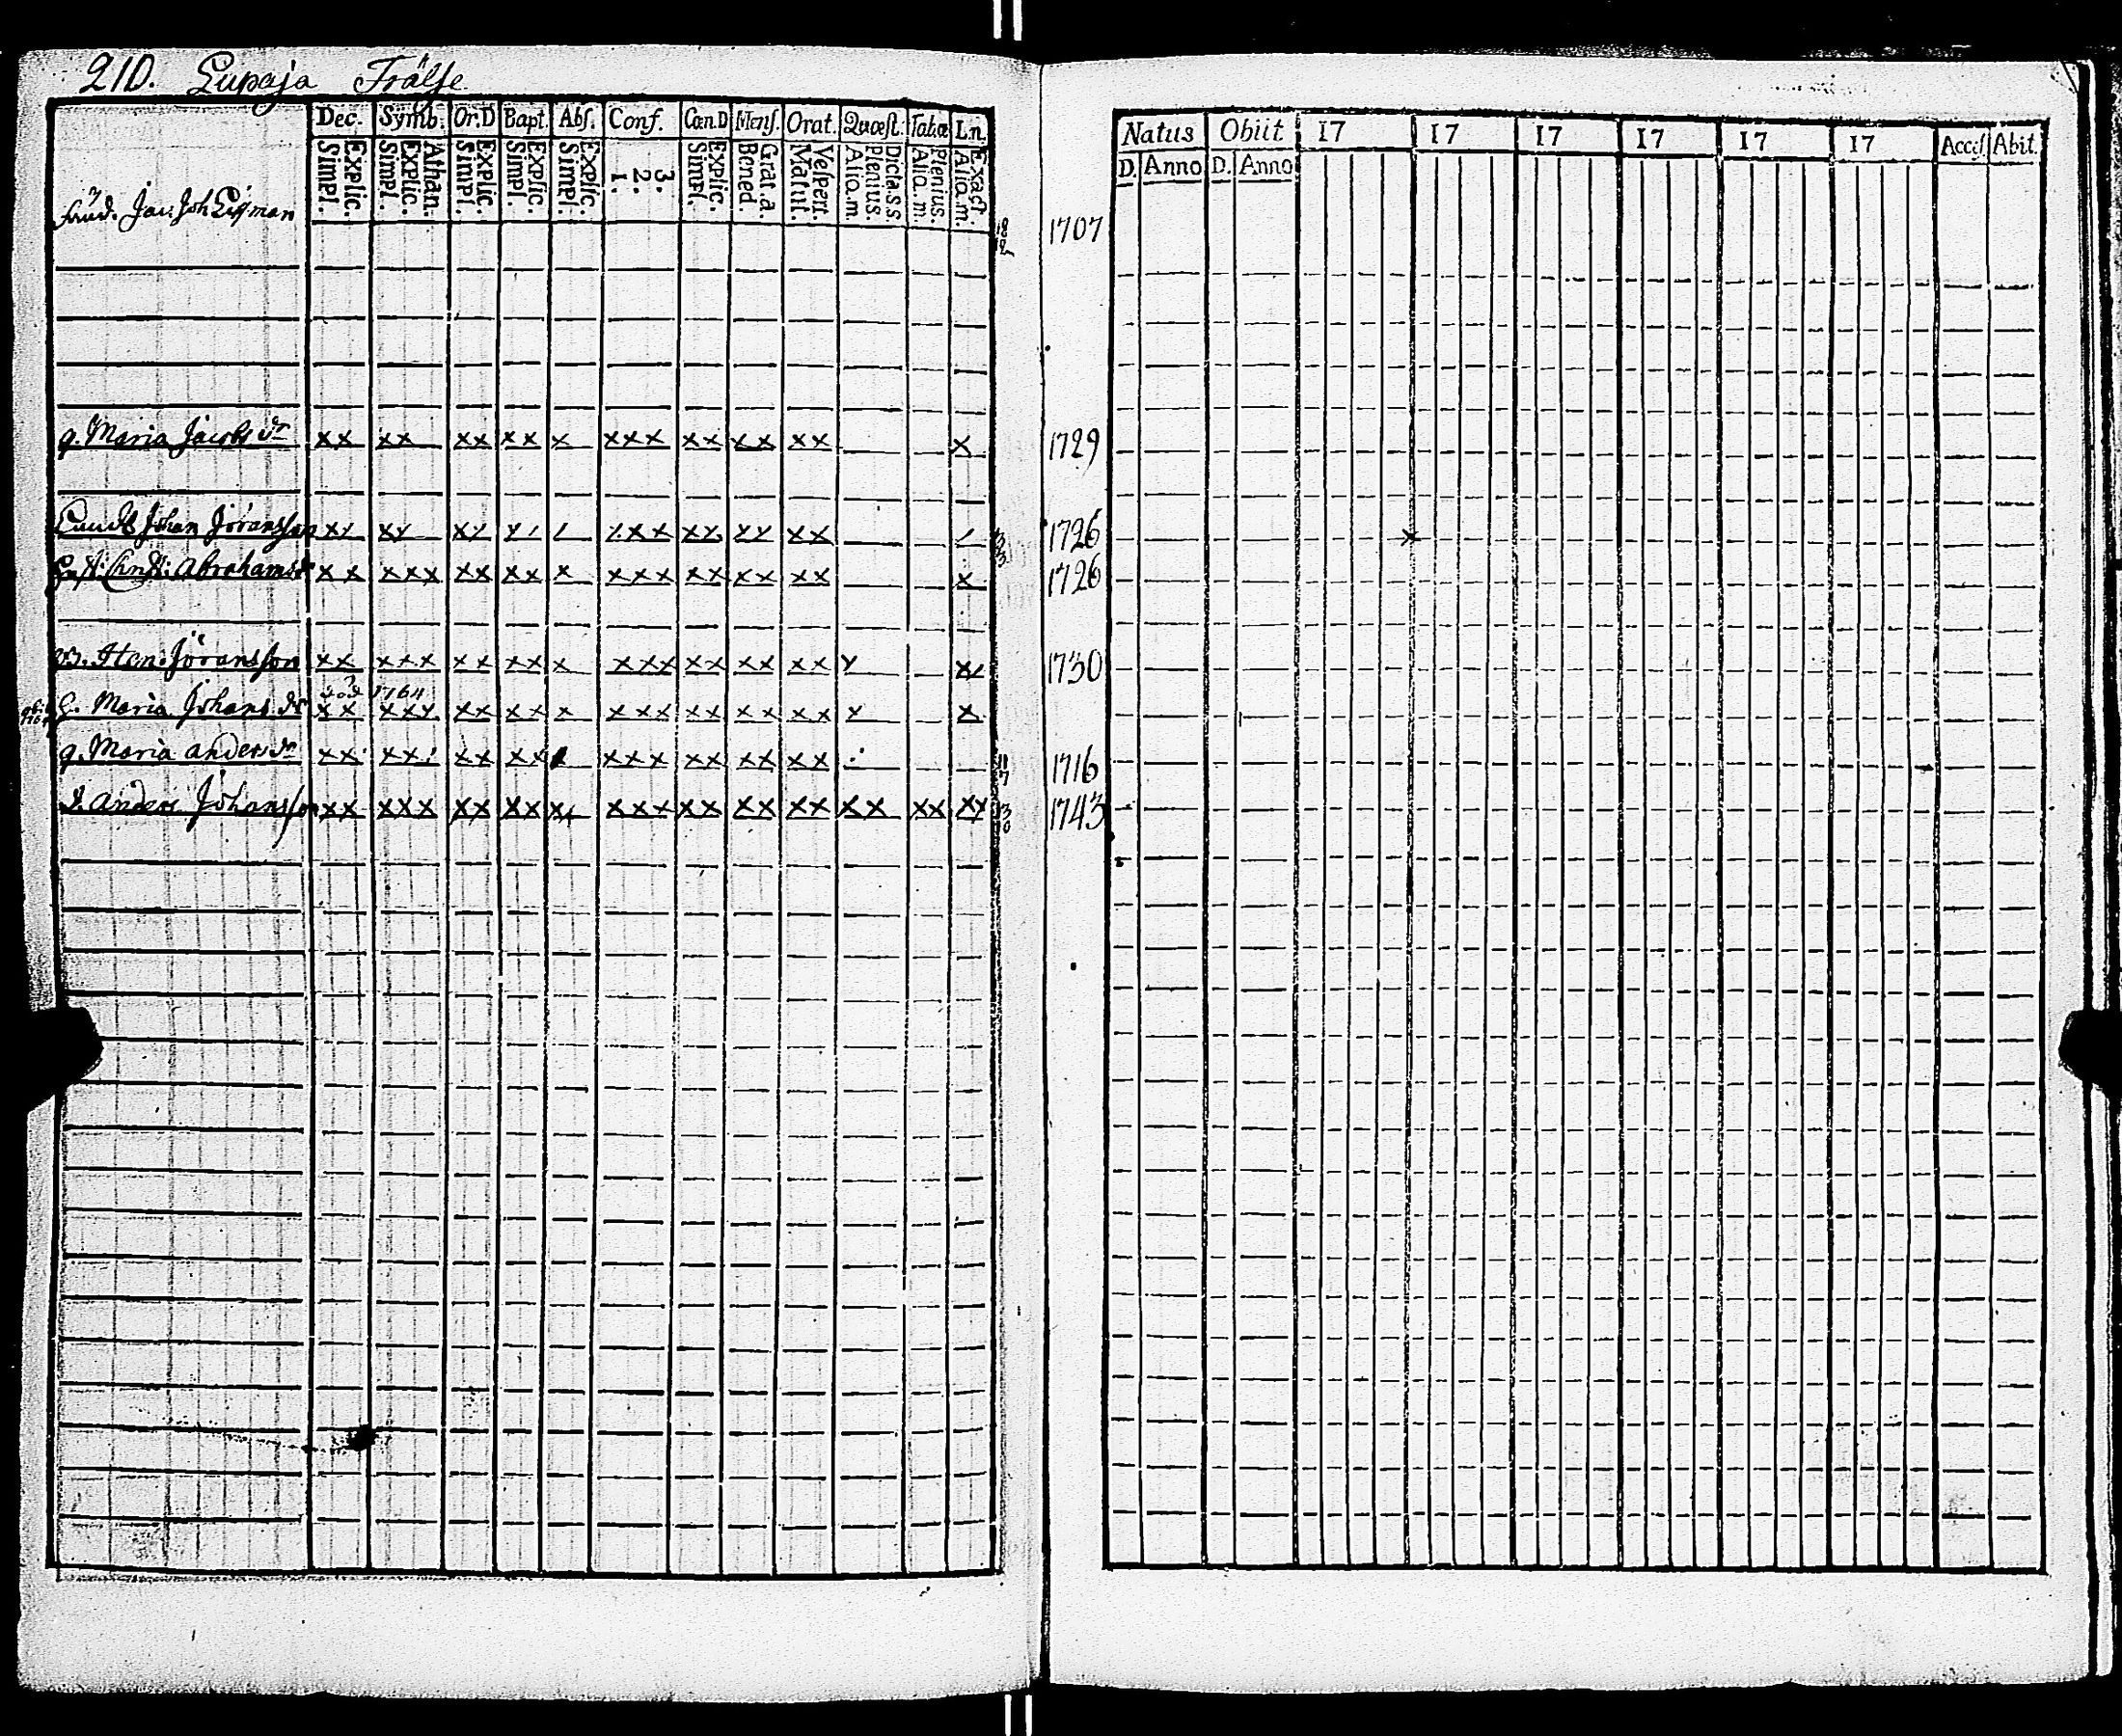 210. Lupaja Frälse
Dec. Symb. Or.D Bapt. Abs. Conf. Cœn.D Mens. Orat. Quæst. Tab.œ L.n.
Explic. Simpl. Athan. Explic. Simpl. Explic. Simpl. Explic. Simpl. Explic. Simpl. 3. 2. 1. Explic. Simpl. Grat.a. Bened. Vespert. Matut. Dictass. Plenius. Alio.m. Plenius. Alio.m. Exact. Alio.m.
Natus Obiit 17 17 17 17 17 17 Acces. Abit.
D. Anno D. Anno
Jac. Joh 1707
q. Maria Jacobs dr xx xx xx xx x xxx xx xx xx x 1729
Johan Jöransson 1726
Abrahams xx xxx xx xx x xxx xx xx xx x 1726
Hen. Jöransson xx xxx xx xx x xxx xx xx xx 1730
död 1764
Maria Johans dr xx xxx xx xx x xxx xx xx xx x x
q. Maria anders dr xx xx xx xx xxx xx xx xx 1716
Anders Johansson xx xxx xx xx xx xxx xx xx xx xx xx xx 1743